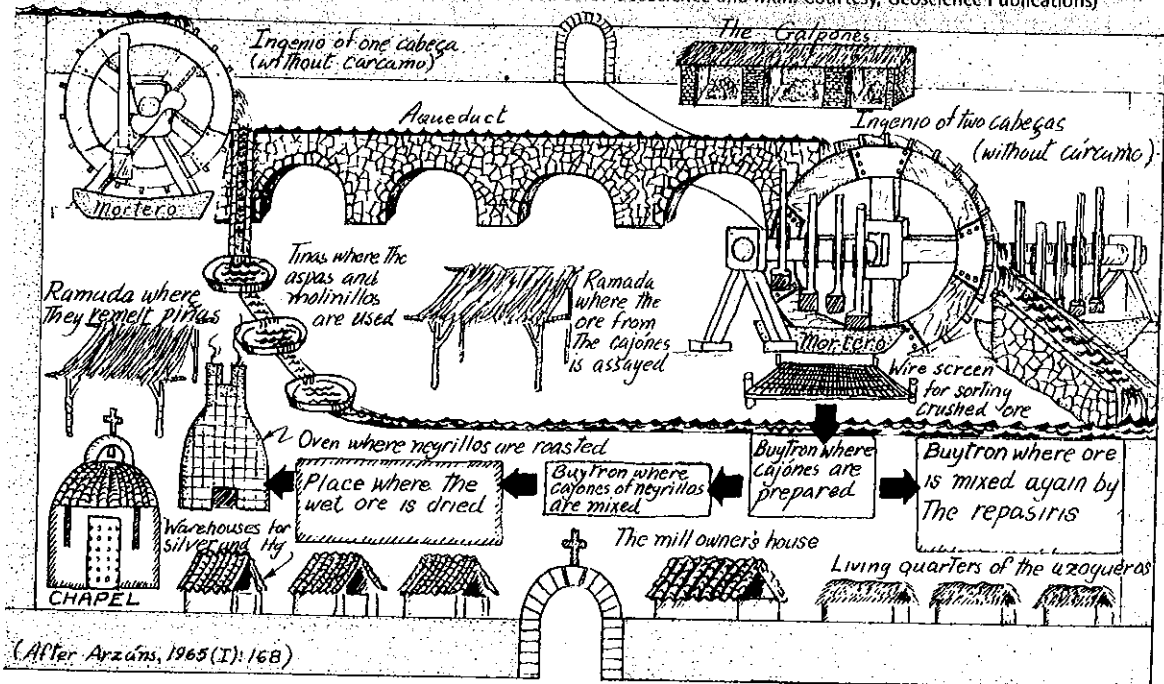 Geoscience and Man. Courtesy, Geoscience Publications)
Ingenio of one cabeça
(without cárcamo)
The Galpones
Aqueduct
Ingenio of two cabeças
(without cárcamo)
Mortero
Tinas where the
aspas and
molinillos
are used
Ramada where
They remelt piñas
Ramada
where the
ore from
The cajónes
is assayed
Mortero
Wire screen
for sorting
crushed ore
Oven where negrillos are roasted
Place where The
wet ore is dried
Buytron where
cajones of negrillos
are mixed
Buytron where
cajones are
prepared
Buytron where ore
is mixed again by
The repasiris
Warehouses for
silver and Hg
The mill owner's house
Living quarters of the azogueros
CHAPEL
(After Arzáns, 1965(I):168)